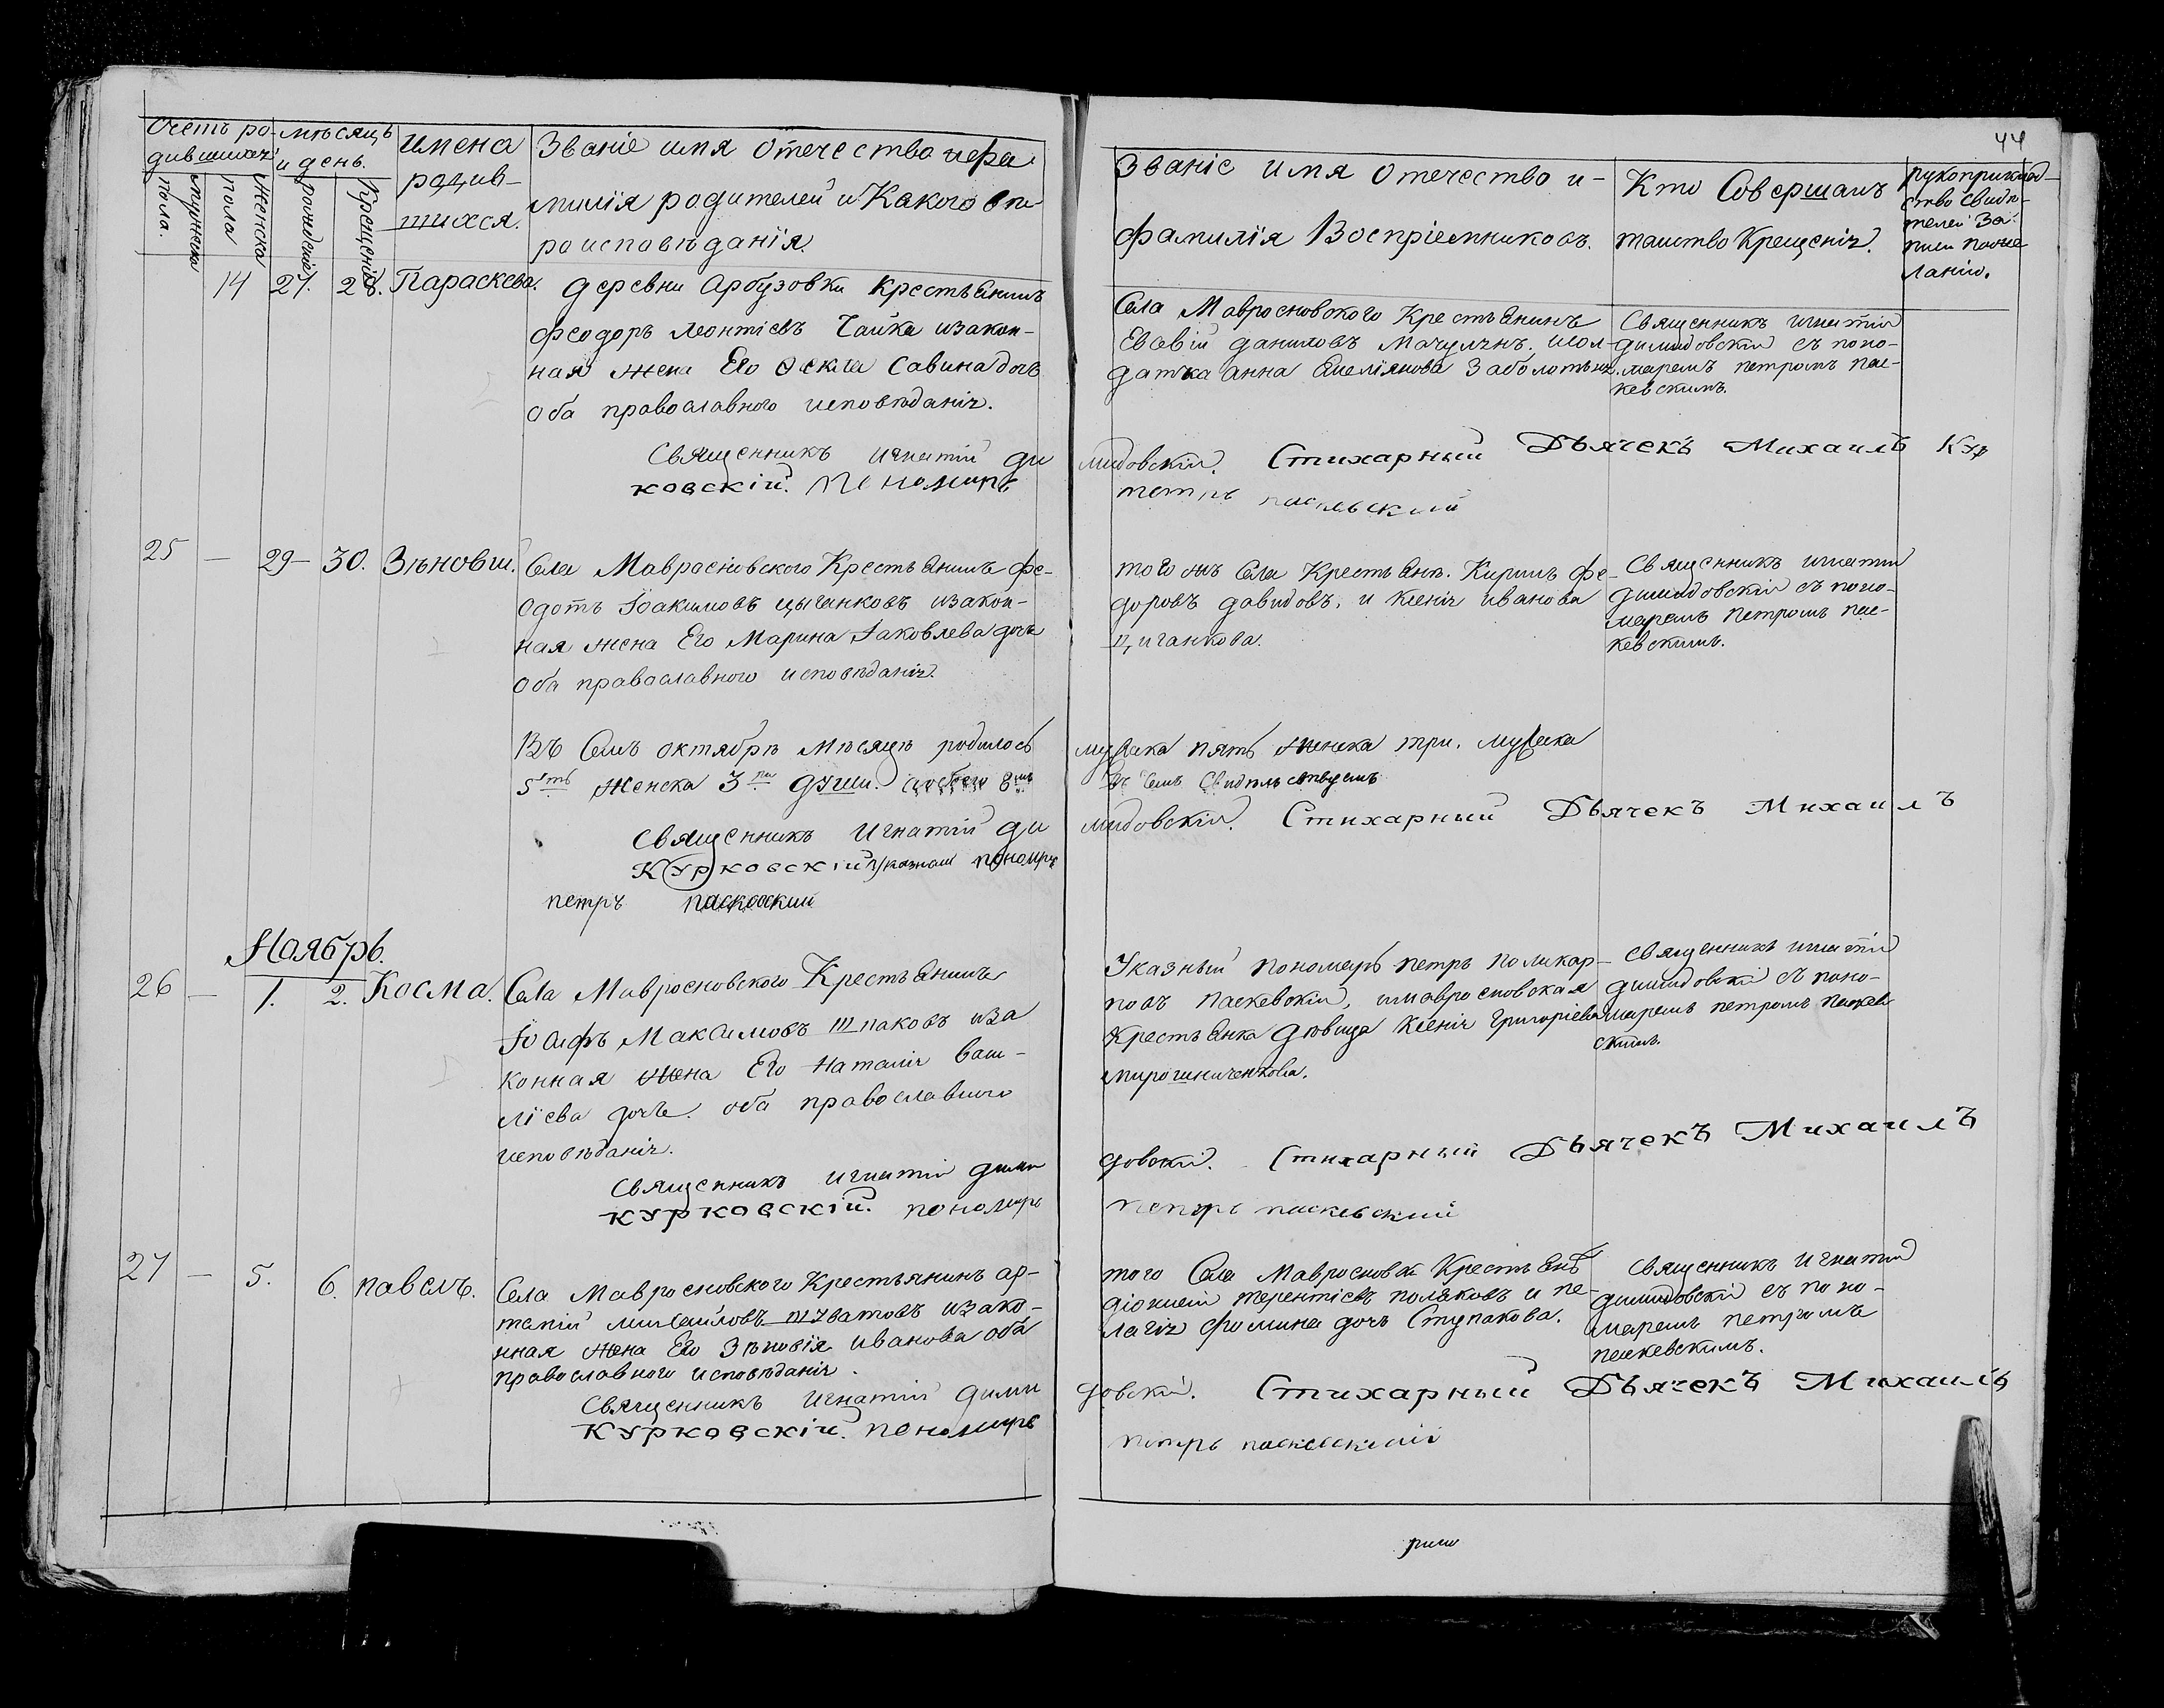 Счетъ ро-
дившихся
мѣсяцъ
и день.
Имена
родив-
шихся.
Званіе имя отечество ифа
милія родителей и Какого вѣ
роисповѣданія.
мужеска
пола.
Женска
пола
рожденіе
Крещеніе
14 27. 28. Параскева.
деревни Арбузовки Крестьянинъ
феодоръ Леонтіевъ Чайка изакон-
ная жена Его Савина дочь
Оба православного исповѣданія.
Священникъ игнатій ди
ковскій. пономарь
25 — 29 — 30. Зѣновій.
Села Мавросновского Крестьянинъ фе-
одотъ Іоакимовъ цыганковъ изакон-
ная жена Его Марина Іаковлева дочь
Оба православного исповѣданія.
Въ Семъ октябрѣ мѣсяцѣ родилось
5ть Женска 3ри души.
Священникъ Игнатій ди
Курковскій указный пономарь
петръ паскевский
Ноябрь.
26 — 1. 2. Косма.
Села Мавросновского Крестьянинъ
Іосифъ Максимовъ шпаковъ иза
конная жена Его Наталія васи-
лїева дочь. оба православного
исповѣданія.
Священникъ игнатій дими
курковскій. пономарь
27 — 5. 6. павелъ.
Села Мавросновского Крестьянинъ ар-
темій михайловъ изако-
нная жена Его Зѣновія иванова оба
православного исповѣданія.
Священникъ Игнатій дими
Курковскій. пономарь
44
Званіе имя отечество и-
фамилія Воспріемниковъ.
Кто Совершалъ
таинство Крещенія.
рукоприклад-
ство свидѣ-
телей за
писи по же
ланію.
Села Мавросновского Крестьянинъ
Евсевій даниловъ исол-
датка Анна Емеліянова Заболотьна.
Священникъ игнатій
димидовскій съ поно-
маремъ петромъ пас-
кевскимъ.
мидовскій. Стихарный Дьячекъ Михаилъ Кур
петръ паскевский
того жъ Села Крестьянъ. Кирилъ фе-
доровъ давидовъ, и Ксенія иванова
Циганкова.
Священникъ игнатій
димидовскій съ поно-
маремъ Петромъ пас-
кевскимъ.
мужеска пять женска три. мужеска
Въ чемъ Свидѣтельствуемъ
мидовскій. Стихарный Дьячекъ Михаилъ
Указный пономарь петръ поликар-
повъ паскевскій, имавросновская
Крестьянка дѣвица Ксенія григоріева
мирошниченкова.
Священникъ игнатій
димидовскій съ поно-
маремъ петромъ паскев
скимъ.
довскій. Стихарный Дьячекъ Михаилъ
петръ паскевский
того Села Мавросновки Крестьянъ
діонисій терентіевъ поляковъ и пе-
лагія фомина дочь Ступакова.
Священникъ Игнатій
димидовскій съ поно-
маремъ петромъ
паскевскимъ.
довскій. Стихарный Дьячекъ Михаилъ
петръ паскевский